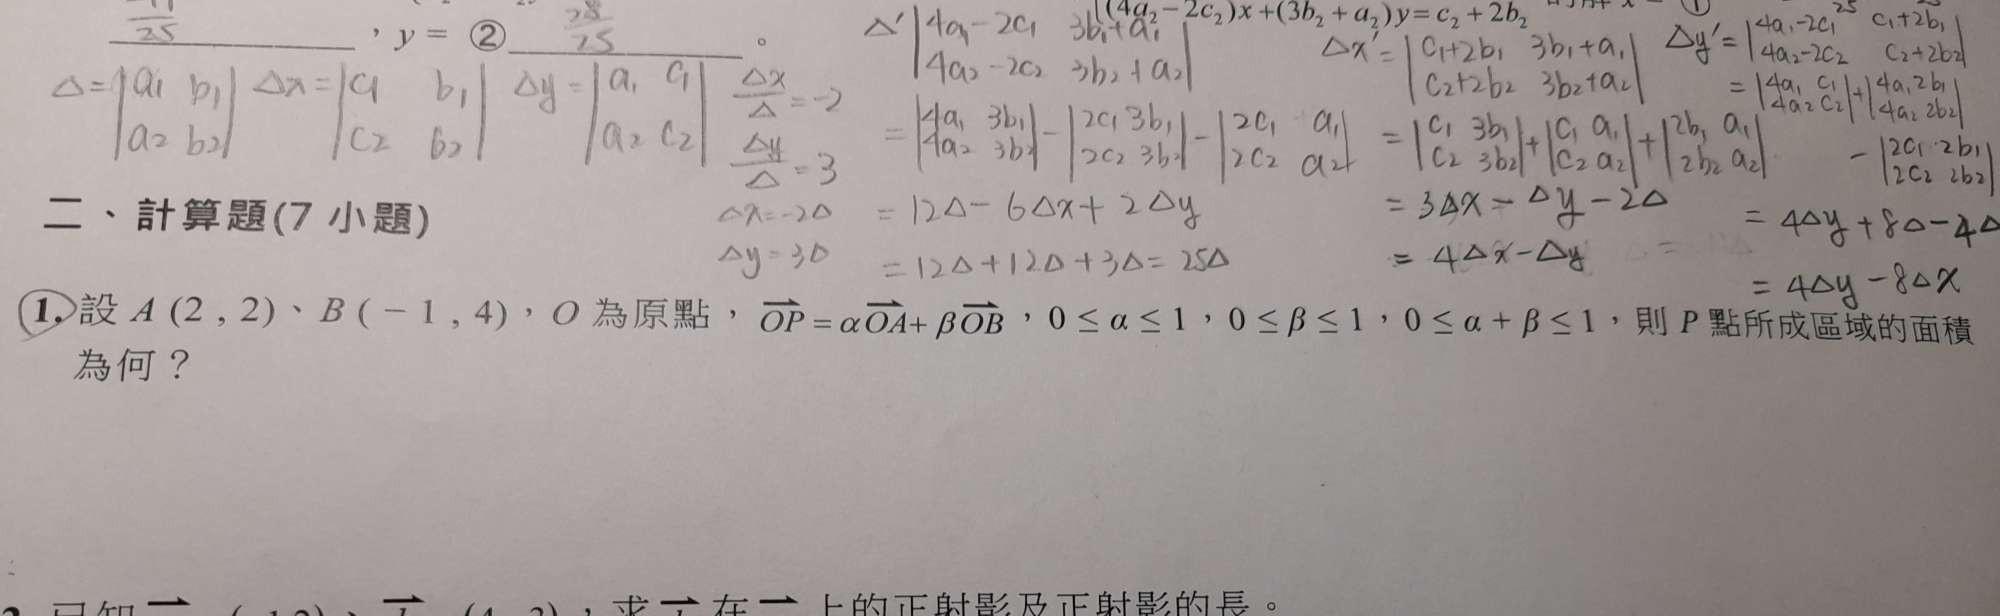 25 , y = ② 28/25 。
(4a₂−2c₂)x+(3b₂+a₂)y=c₂+2b₂
Δ=|a₁ b₁; a₂ b₂| Δx=|c₁ b₁; c₂ b₂| Δy=|a₁ c₁; a₂ c₂|
Δx/Δ=-2
Δy/Δ=3
Δx=-2Δ
Δy=3Δ
Δ'|4a₁-2c₁ 3b₁+a₁; 4a₂-2c₂ 3b₂+a₂|
=|4a₁ 3b₁; 4a₂ 3b₂|-|2c₁ 3b₁; 2c₂ 3b₂|-|2c₁ a₁; 2c₂ a₂|
=12Δ-6Δx+2Δy
=12Δ+12Δ+3Δ=25Δ
Δx'=|c₁+2b₁ 3b₁+a₁; c₂+2b₂ 3b₂+a₂|
=|c₁ 3b₁; c₂ 3b₂|+|c₁ a₁; c₂ a₂|+|2b₁ a₁; 2b₂ a₂|
=3Δx-Δy-2Δ
=4Δx-Δy
Δy'=|4a₁-2c₁ c₁+2b₁; 4a₂-2c₂ c₂+2b₂|
=|4a₁ c₁; 4a₂ c₂|+|4a₁ 2b₁; 4a₂ 2b₂|
-|2c₁ 2b₁; 2c₂ 2b₂|
=4Δy+8Δ-4Δ
=4Δy-8Δx
二、計算題(7 小題)
1. 設 A (2 , 2)、B ( − 1 , 4),O 為原點,OP = αOA + βOB,0 ≤ α ≤ 1,0 ≤ β ≤ 1,0 ≤ α + β ≤ 1,則 P 點所成區域的面積
為何?
上的正射影及正射影的長。